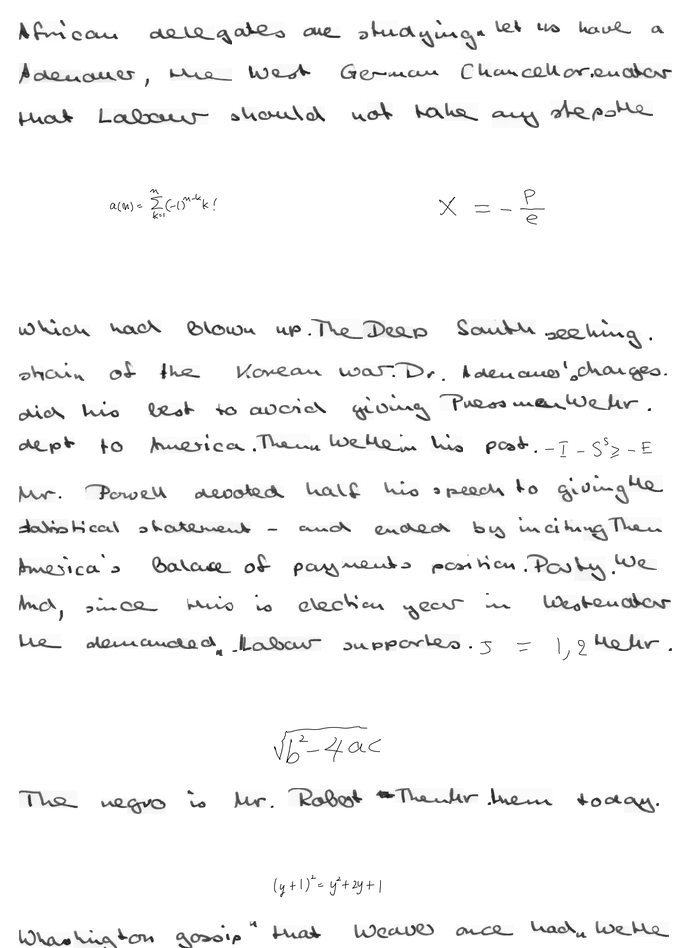 African delegates are studying. let us have a
Adenauer, the West German Chancellor. enator
that Labour should not take any steps He
a(n) = \sum_{k=1}^{n} (-1)^{n-k} k!
X = - \frac{P}{e}
which had blown up. The Deep South seeking.
strain of the Korean war. Dr. Adenauer's charges.
did his best to avoid giving Pressmen We Mr.
dept to America. Them We He in his post. - I - S^s \geq - E
Mr. Powell devoted half his speech to giving He
statistical statement - and ended by inciting Then
America's balance of payments position. Party. We
And, since this is election year in West enator
He demanded " . Labour supporters. J = 1, 2 He Mr.
\sqrt{b^2 - 4ac}
The negro is Mr. Robert - Then Mr. them today.
(y+1)^2 = y^2 + 2y + 1
Whashington gossip " that Weaver once had " We He